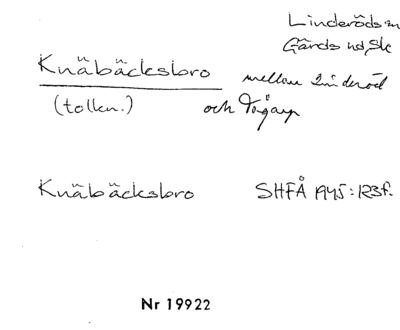 Linderöds sn
Gärds hd, Sk
Knäbäcksbro mellan Linderöd
(tolkn.) och
Knäbäcksbro SHFÅ 1945:123f.
Nr 19922